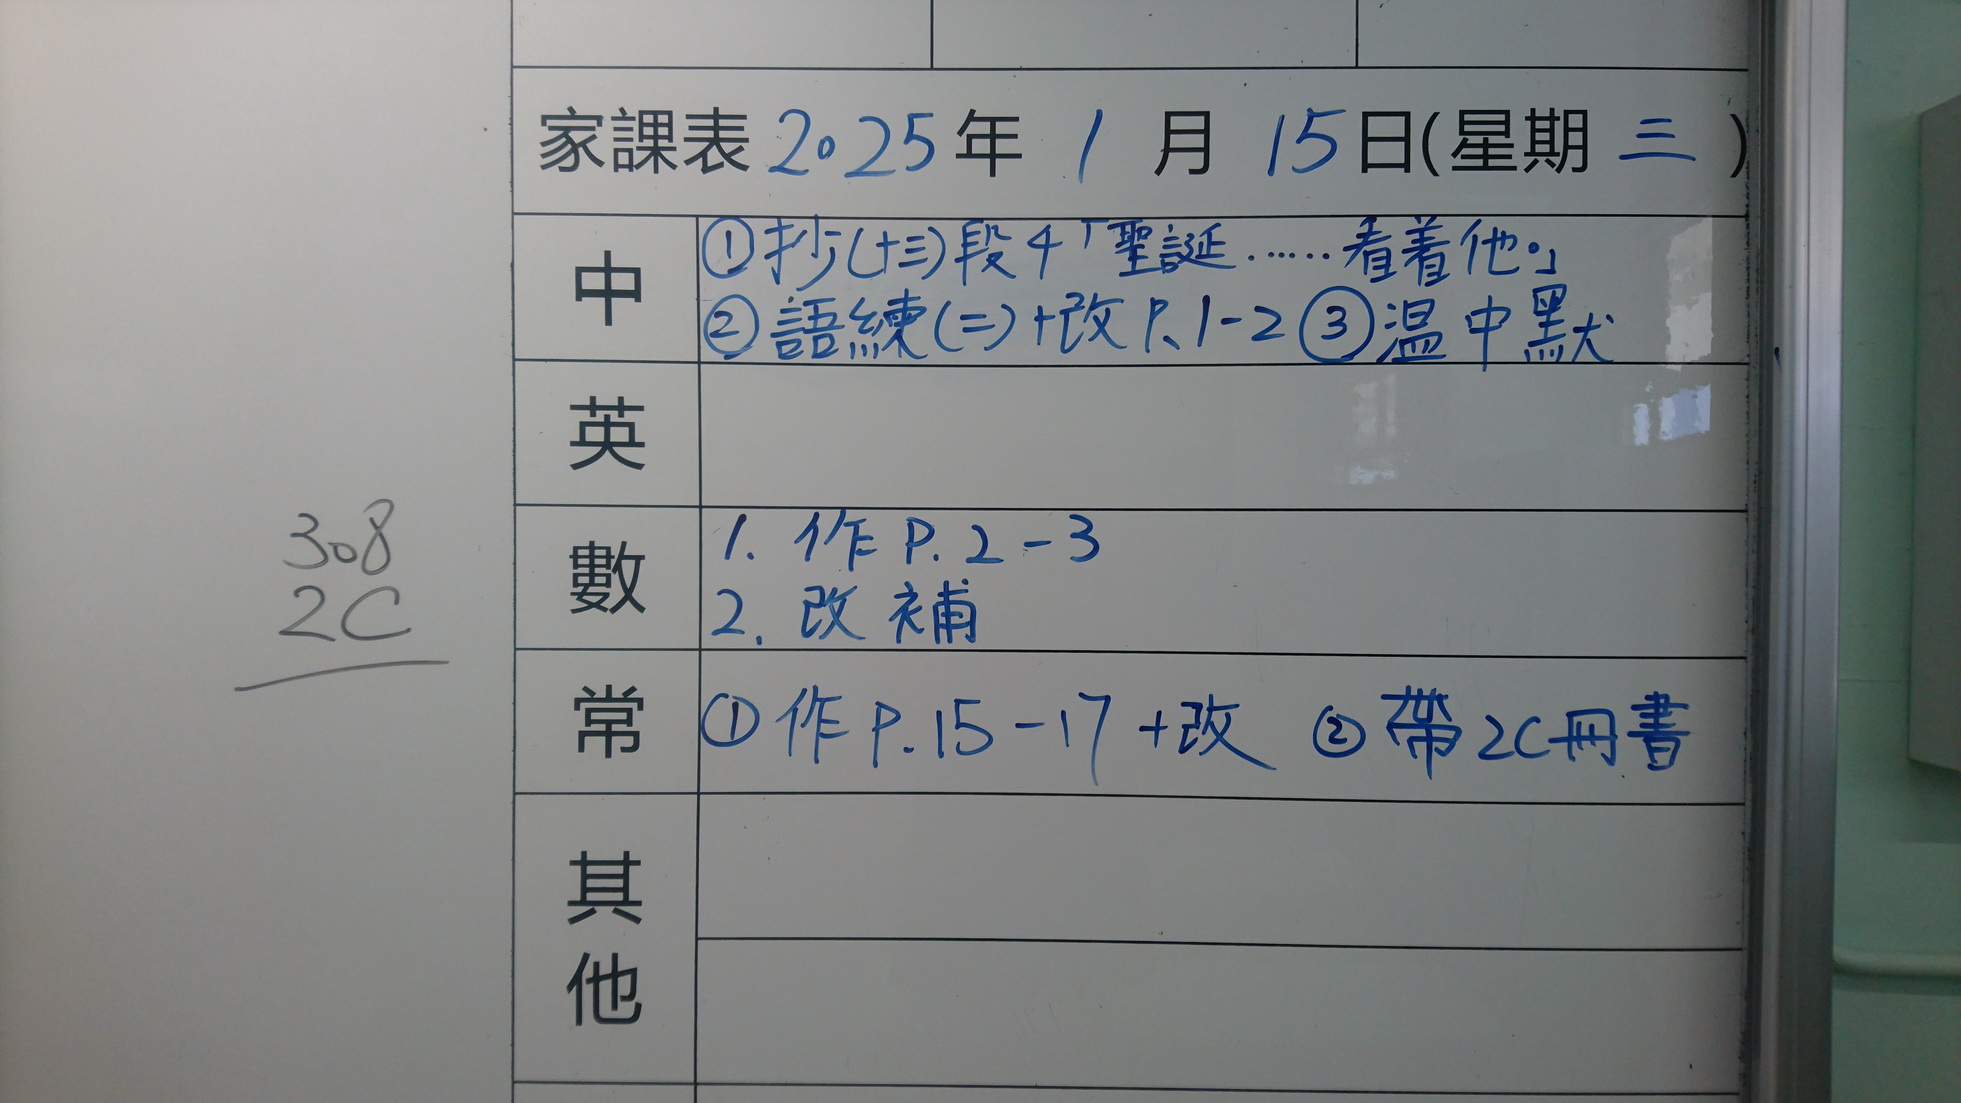 家課表 2025年 1月 15日(星期三)
中
①抄(十三)段4「聖誕……看着他。」
②語練(二)+改 P.1-2 ③温中默
英
數
1. 作 P.2-3
2. 改補
常
①作 P.15-17 +改 ②帶2C冊書
其他
308
2C